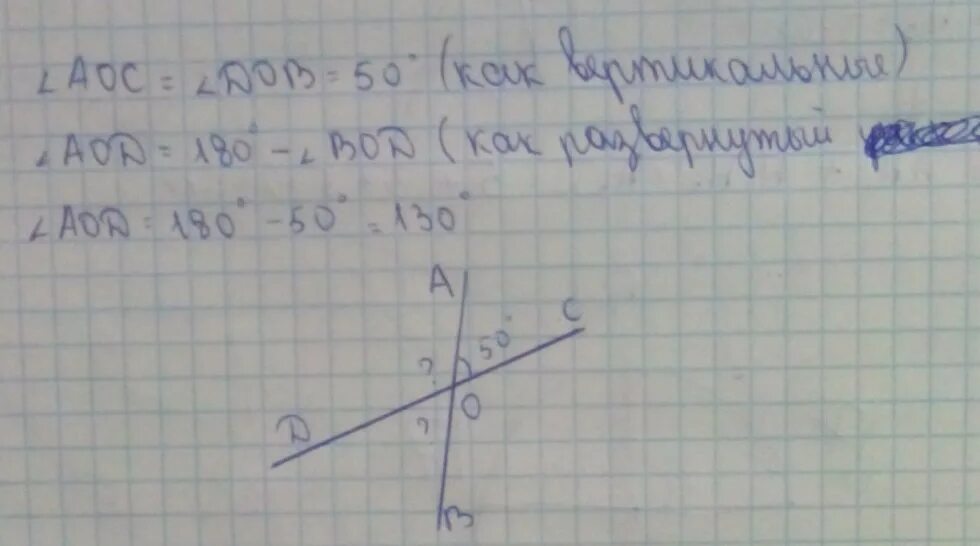 ∠AOC = ∠DOB = 50° (как вертикальные)
∠AOD = 180° - ∠BOD (как развернутый
∠AOD = 180° - 50° = 130°
A
C
50°
?
O
D
?
B